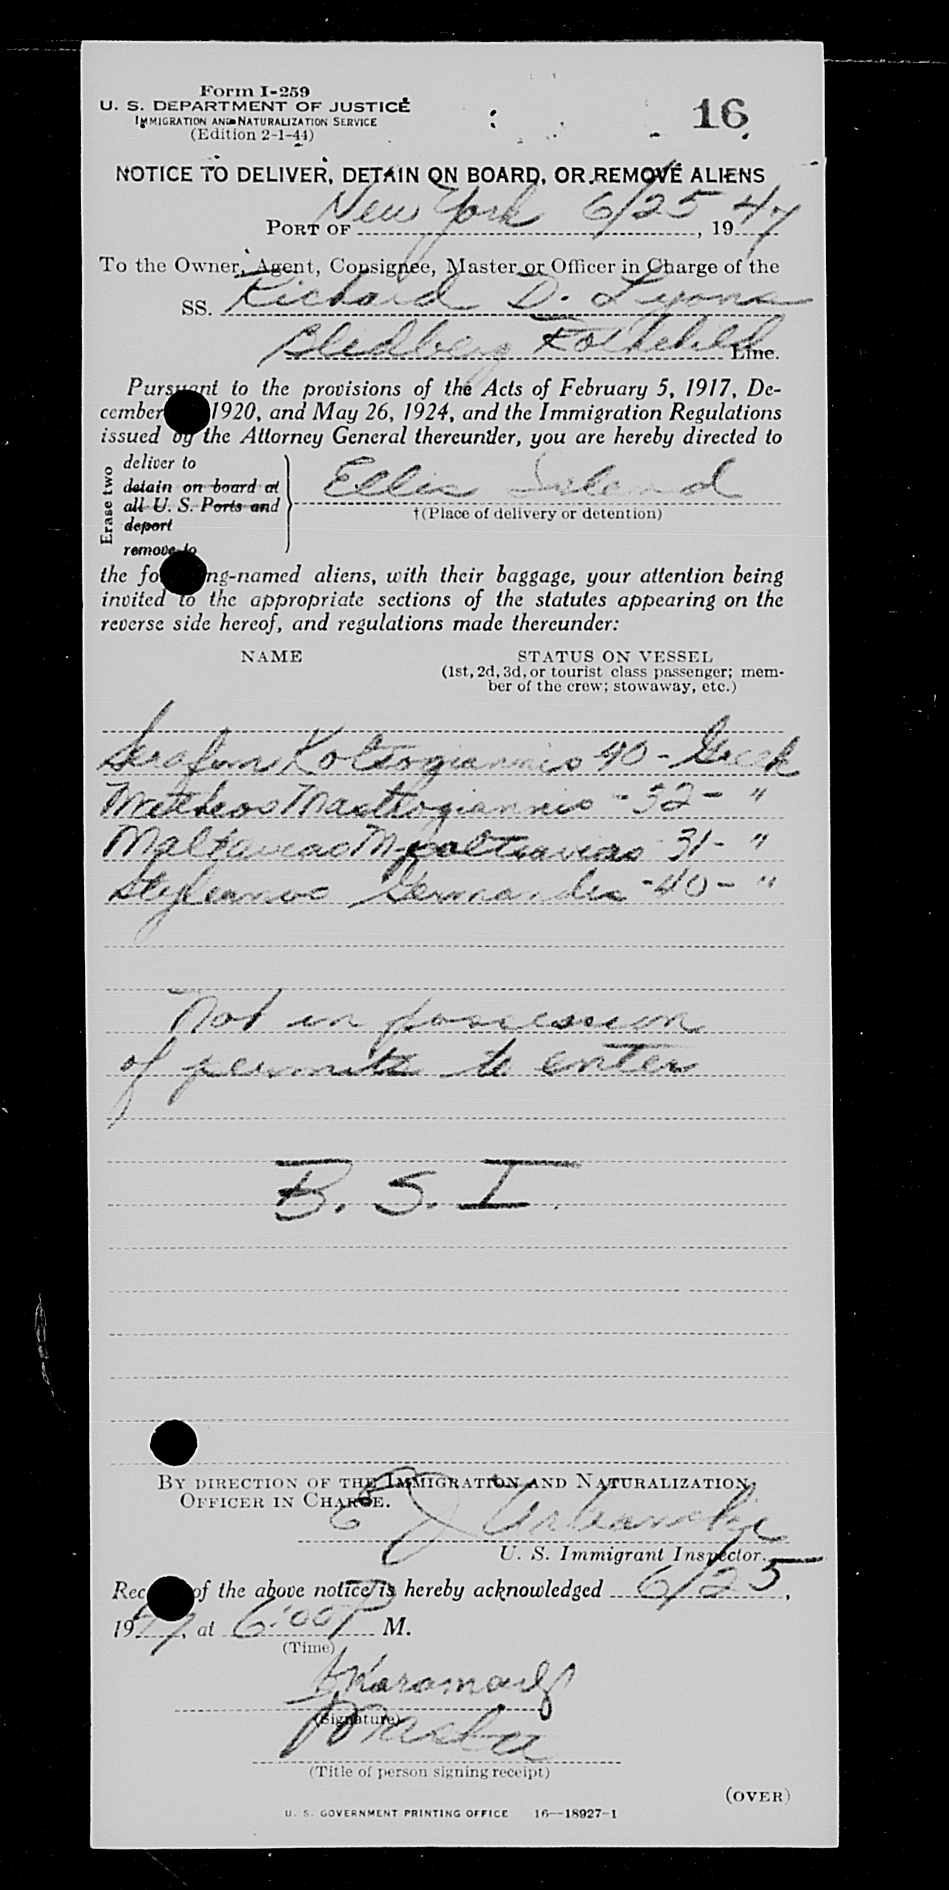 Form I-259
U. S. DEPARTMENT OF JUSTICE
IMMIGRATION AND NATURALIZATION SERVICE
(Edition 2-1-44)
16
NOTICE TO DELIVER, DETAIN ON BOARD, OR REMOVE ALIENS
PORT OF New York 6/25, 1947
To the Owner, Agent, Consignee, Master or Officer in Charge of the
SS. Richard D. Lyons
Line.
Pursuant to the provisions of the Acts of February 5, 1917, De-
cember 1920, and May 26, 1924, and the Immigration Regulations
issued by the Attorney General thereunder, you are hereby directed to
Erase two
deliver to
detain on board at
all U. S. Ports and
deport
remove to
Ellis Island
†(Place of delivery or detention)
the fo ng-named aliens, with their baggage, your attention being
invited to the appropriate sections of the statutes appearing on the
reverse side hereof, and regulations made thereunder:
NAME STATUS ON VESSEL
(1st, 2d, 3d, or tourist class passenger; mem-
ber of the crew; stowaway, etc.)
Serafim Kotsogiannis 40 - Greek
Matheos Mastrogiannis - 52 - "
31 - "
- 40 - "
Not in possession
of permits to enter
B. S. I.
BY DIRECTION OF THE IMMIGRATION AND NATURALIZATION
OFFICER IN CHARGE.
E J Urbanski
U. S. Immigrant Inspector.
Rec of the above notice is hereby acknowledged 6/25,
1947, at 6:00 P M.
(Time)
(Signature)
Master
(Title of person signing receipt)
(OVER)
U. S. GOVERNMENT PRINTING OFFICE 16—18927-1